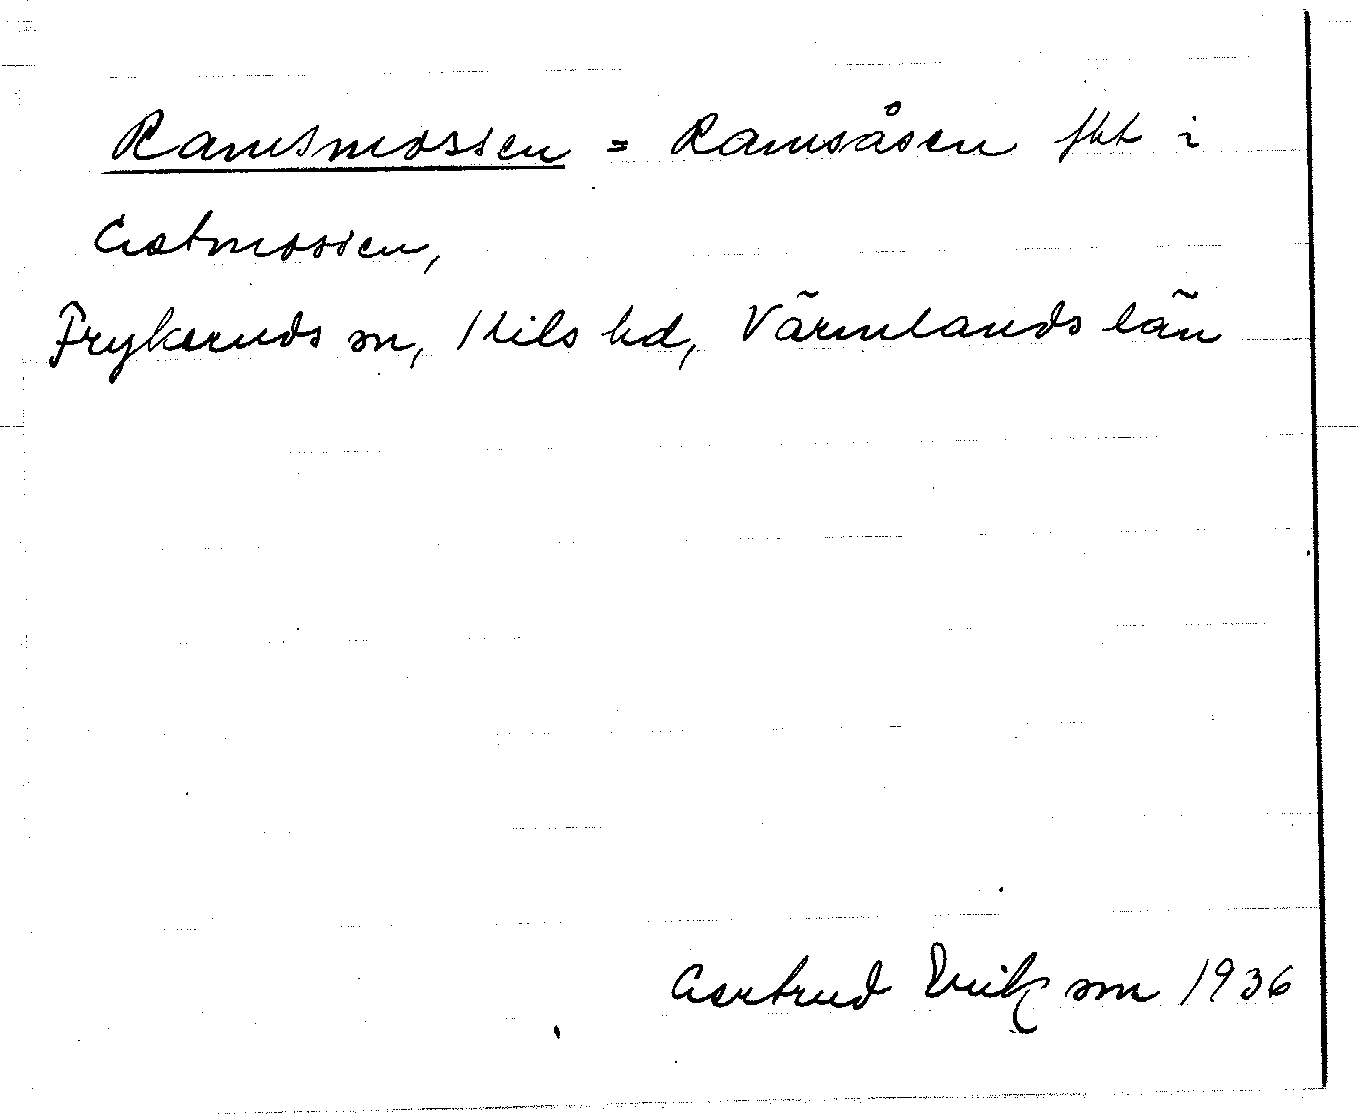 Ramsmossen = Ramsåsen fkt i
Gatmossen,
Frykeruds sn, Kils hd, Värmlands län
Gertrud Erikson 1936